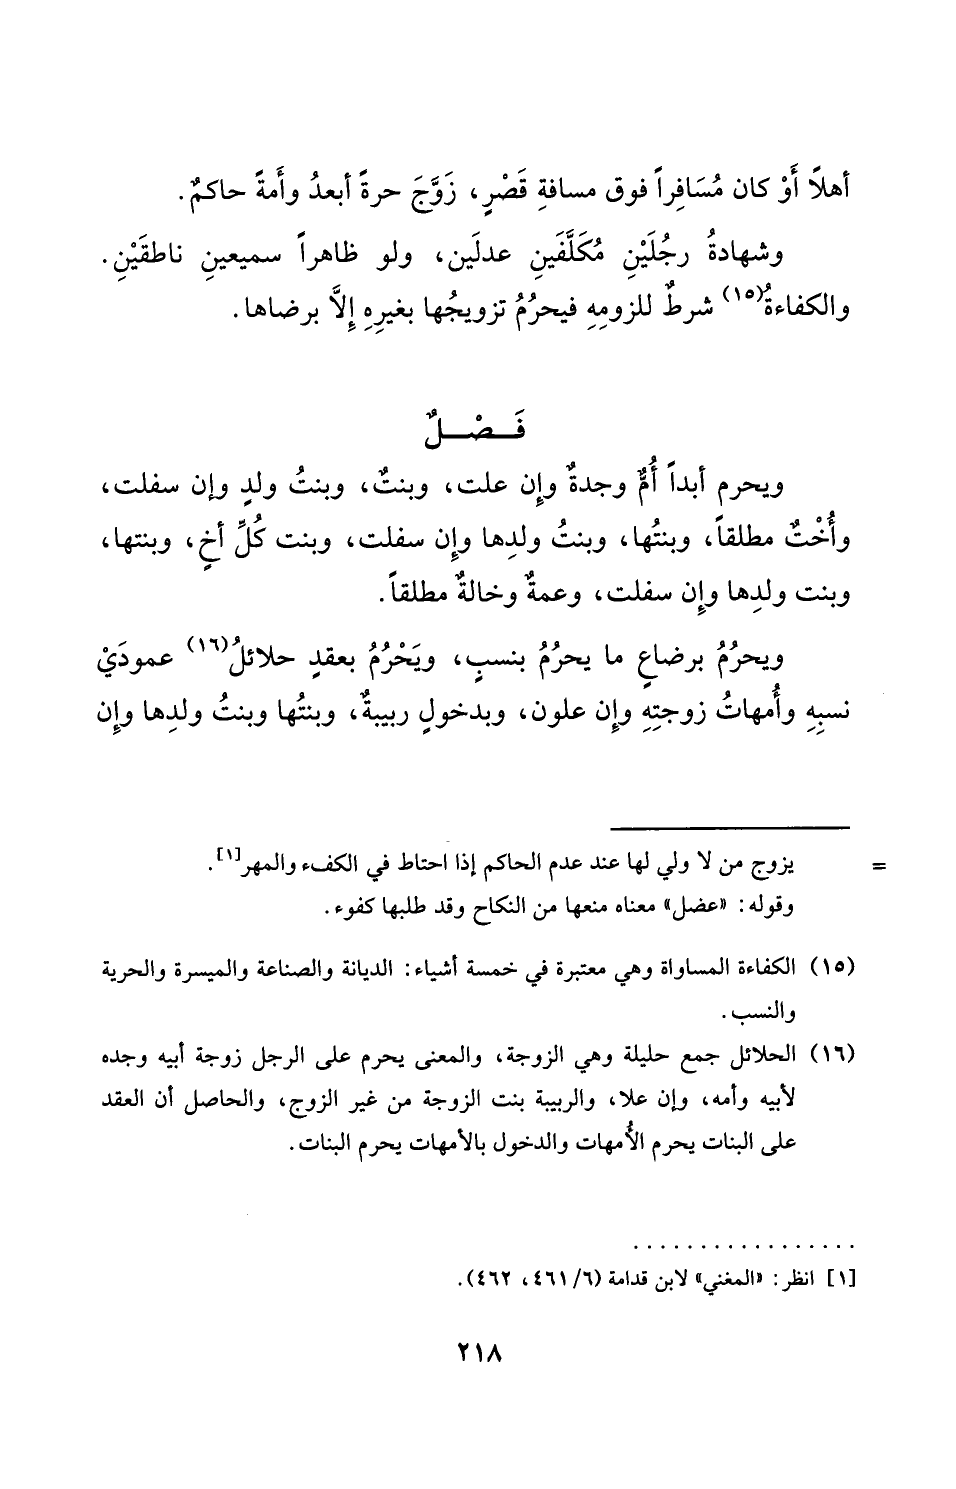 أهلاً أَوْ كان مُسَافِراً فوق مسافةِ قَصْرٍ، زَوَّجَ حرةً أبعدُ وأَمةً حاكمٌ.
وشهادةُ رجُلَيْنِ مُكَلَّفَينِ عدلَين، ولو ظاهراً سميعينِ ناطقَيْنِ.
والكفاءةُ(١٥) شرطٌ للزومِهِ فيحرُمُ تزويجُها بغيرِهِ إِلاَّ برضاها.
فَـصْـلٌ
ويحرم أبداً أُمٌّ وجدةٌ وإن علت، وبنتٌ، وبنتُ ولدٍ وإن سفلت،
وأُخْتٌ مطلقاً، وبنتُها، وبنتُ ولدِها وإِن سفلت، وبنت كُلِّ أخٍ، وبنتها،
وبنت ولدِها وإِن سفلت، وعمةٌ وخالةٌ مطلقاً.
ويحرُمُ برضاعٍ ما يحرُمُ بنسبٍ، ويَحْرُمُ بعقدٍ حلائلُ(١٦) عمودَيْ
نسبِهِ وأُمهاتُ زوجتِهِ وإِن علون، وبدخولٍ ربيبةٌ، وبنتُها وبنتُ ولدِها وإِن
= يزوج من لا ولي لها عند عدم الحاكم إذا احتاط في الكفء والمهر[١].
وقوله: «عضل» معناه منعها من النكاح وقد طلبها كفوء.
(١٥) الكفاءة المساواة وهي معتبرة في خمسة أشياء: الديانة والصناعة والميسرة والحرية
والنسب.
(١٦) الحلائل جمع حليلة وهي الزوجة، والمعنى يحرم على الرجل زوجة أبيه وجده
لأبيه وأمه، وإن علا، والربيبة بنت الزوجة من غير الزوج، والحاصل أن العقد
على البنات يحرم الأُمهات والدخول بالأمهات يحرم البنات.
.................
[١] انظر: «المغني» لابن قدامة (٦/ ٤٦١، ٤٦٢).
٢١٨